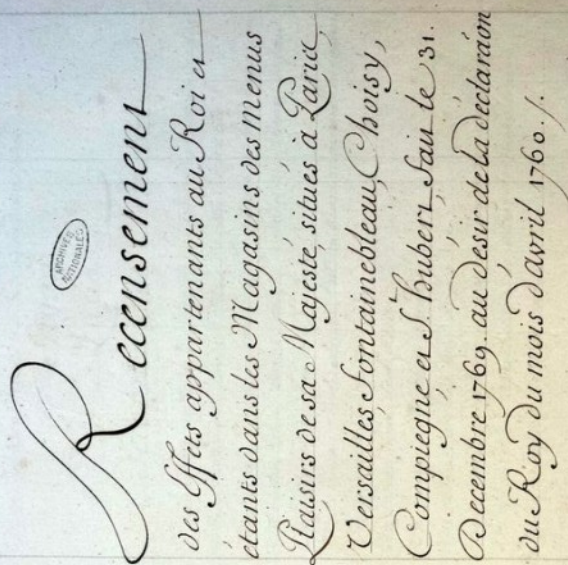 Recensement
ARCHIVES
NATIONALES
des Effets appartenants au Roi et
étants dans les Magasins des menus
Plaisirs de sa Majesté, situés à Paris,
Versailles, Fontainebleau, Choisy,
Compiegne et St. hubert, fait le 31.
Decembre 1769. au désir de la déclaraõn
du Roy du mois d'avril 1760. /.